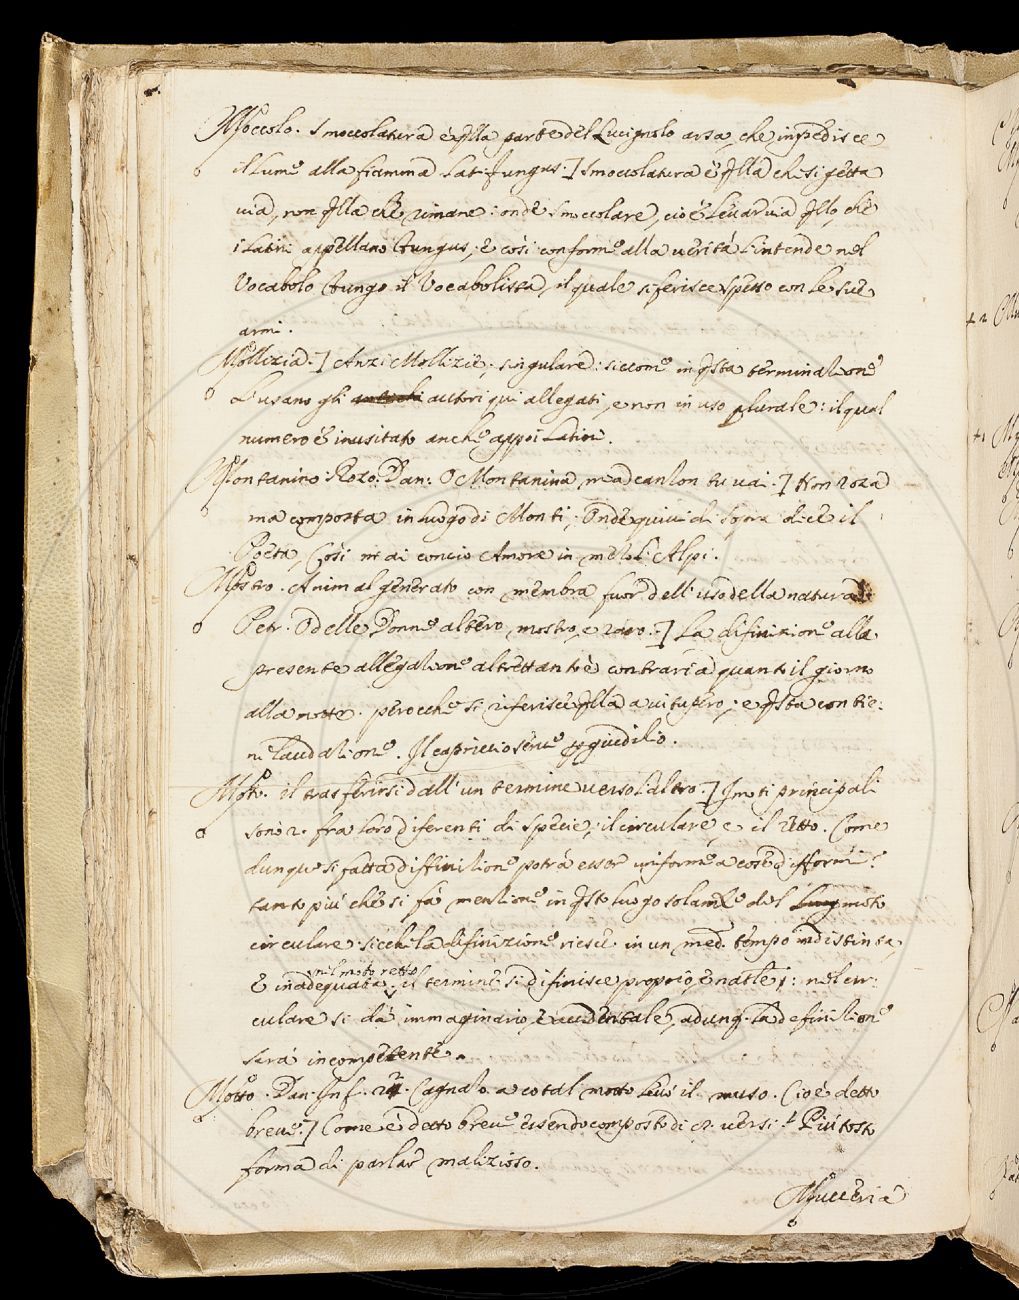 Moccolo. Smoccolatura è qlla parte del Lucignolo arsa, che impedisce
il lume alla fiamma. Lat. fungus] Smoccolatura è qlla che si getta
via, non qlla che rimane: onde Smoccolare, ciò è Levar via qllo, che
i Latini appellano fungus; e così conforme alla verità l'intende nel
Vocabolo fungo il Vocabolista, il quale si ferisce spesso con le sue
armi.
Mollizia.] Anzi Mollizie, singulare: siccome in qsta terminazione
l'usano gli autori qui allegati, e non in uso plurale: il qual
numero è inusitato anche appo i Latini.
Montanino: Rozo. Dan: O Montanina mea canzon tu vai.] Non roza
ma composta in luogo di Monti; Onde quivi di sopra dice il
Poeta, Così m'ai concio Amore in mezo l'Alpi.
Mostro. Animal generato con membra fuor dell'uso della natura
Petr. O delle Donne altero, mostro, e raro.] La difinizione alla
presente allegazione altrettanto è contraria quanto il giorno
alla notte. perocche si riferisce qlla a vitupero; e qsta contie:
ne laudazione. Il capriccio serve p giudizio.
Moto. il trasferirsi dall'un termine verso l'altro.] I moti principali
sono 2. fra loro diferenti di specie, il circulare, e il retto. Come
dunque si fatta diffinizione potrà esser uniforme a cose difformi?
tanto più che si fà menzione in qsto luogo solamte del moto
circulare. sicchè la difinizione riesce in un med. tempo indistinta,
nel moto retto
e inadequata, il termine si difinisce proprio, e natle: nel cir:
culare si dà immaginario, e accidentale, adunq. la definizione
sarà incompetente.
Motto. Dan. Inf. 22. Cagnazo a cotal motto levò il muso. Cioè detto
breve.] Come è detto breve essendo composto di 2. versi? Più tosto
forma di parlar malizioso.
Mucceria